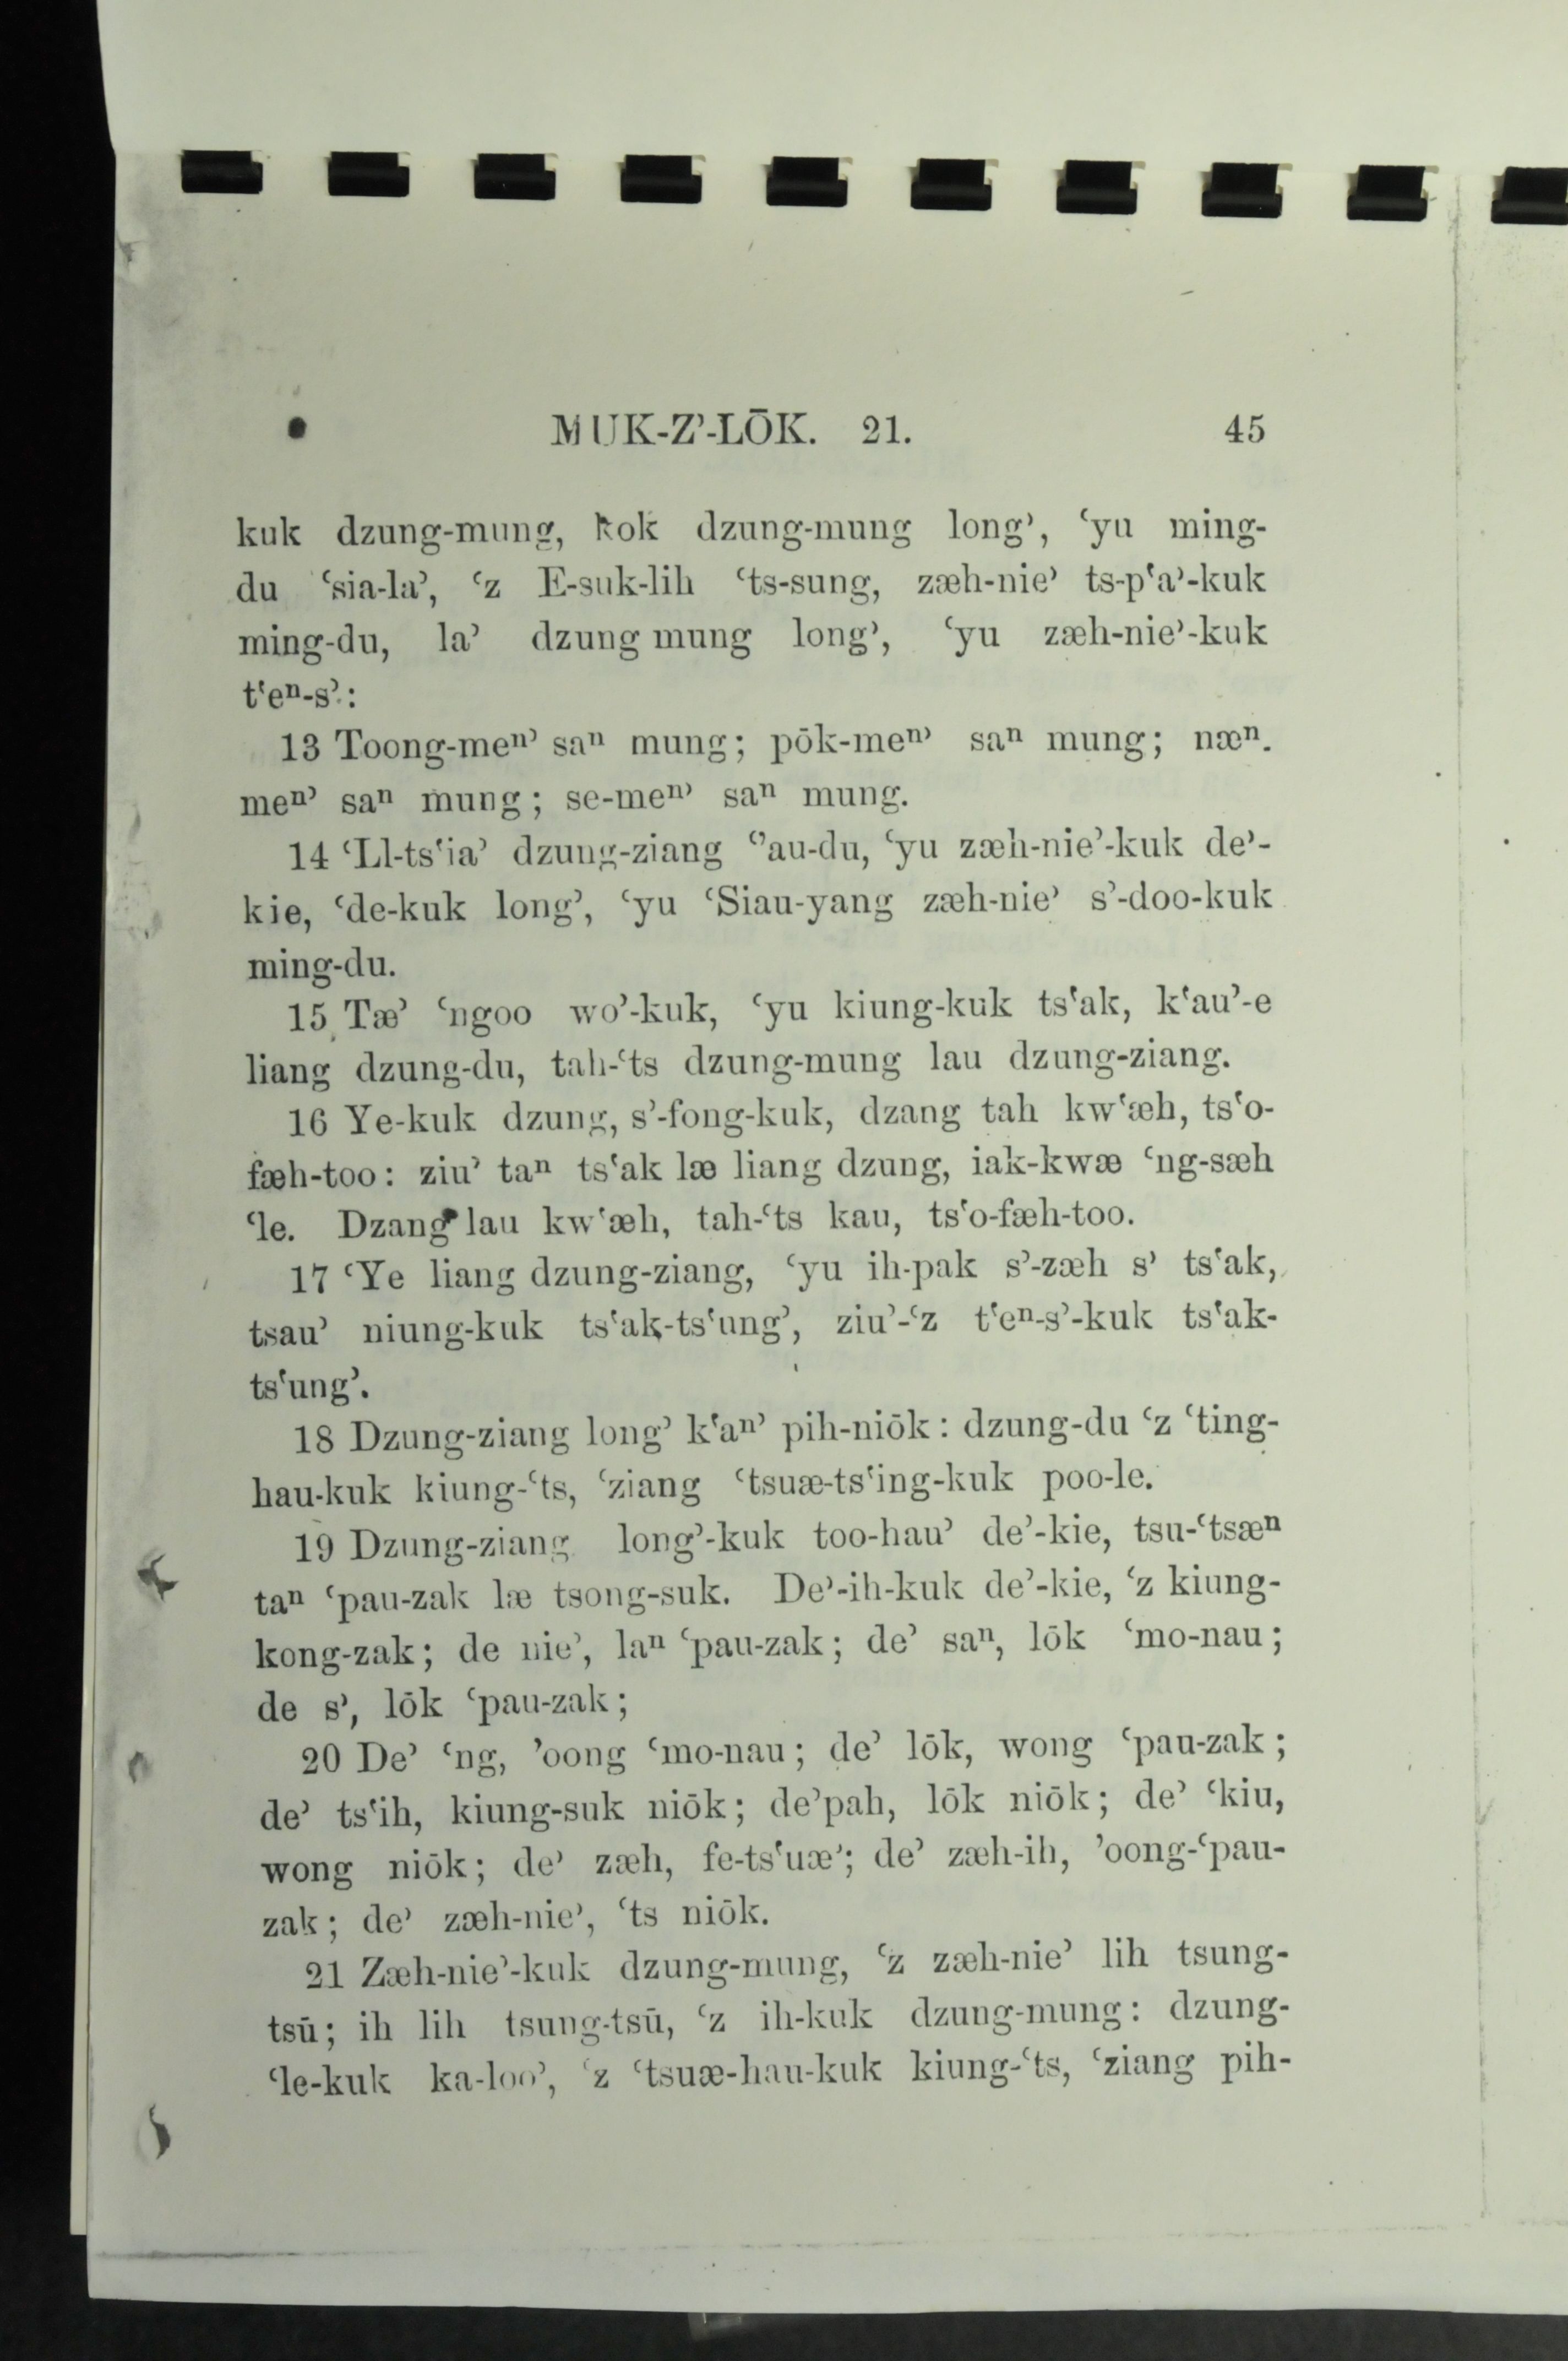 MUK-Z’-LŌK. 21. 45
kuk dzung-mung, kok dzung-mung long’, ‘yu ming-
du ‘sia-la’, ‘z E-suk-lih ‘ts-sung, zæh-nie’ ts-p‘a’-kuk
ming-du, la’ dzung mung long’, ‘yu zæh-nie’-kuk
t‘eⁿ-s’:
13 Toong-meⁿ’ saⁿ mung; pōk-meⁿ’ saⁿ mung; næⁿ-
meⁿ’ saⁿ mung; se-meⁿ’ saⁿ mung.
14 ‘Ll-ts‘ia’ dzung-ziang ‘’au-du, ‘yu zæh-nie’-kuk de’-
kie, ‘de-kuk long’, ‘yu ‘Siau-yang zæh-nie’ s’-doo-kuk
ming-du.
15 Tæ’ ‘ngoo wo’-kuk, ‘yu kiung-kuk ts‘ak, k‘au’-e
liang dzung-du, tah-‘ts dzung-mung lau dzung-ziang.
16 Ye-kuk dzung, s’-fong-kuk, dzang tah kw‘æh, ts‘o-
fæh-too: ziu’ taⁿ ts‘ak læ liang dzung, iak-kwæ ‘ng-sæh
‘le. Dzang lau kw‘æh, tah-‘ts kau, ts‘o-fæh-too.
17 ‘Ye liang dzung-ziang, ‘yu ih-pak s’-zæh s’ ts‘ak,
tsau’ niung-kuk ts‘ak-ts‘ung’, ziu’-‘z t‘eⁿ-s’-kuk ts‘ak-
ts‘ung’.
18 Dzung-ziang long’ k‘aⁿ’ pih-niōk: dzung-du ‘z ‘ting-
hau-kuk kiung-‘ts, ‘ziang ‘tsuæ-ts‘ing-kuk poo-le.
19 Dzung-ziang long’-kuk too-hau’ de’-kie, tsu-‘tsæⁿ
taⁿ ‘pau-zak læ tsong-suk. De’-ih-kuk de’-kie, ‘z kiung-
kong-zak; de nie’, laⁿ ‘pau-zak; de’ saⁿ, lōk ‘mo-nau;
de s’, lōk ‘pau-zak;
20 De’ ‘ng, ’oong ‘mo-nau; de’ lōk, wong ‘pau-zak;
de’ ts‘ih, kiung-suk niōk; de’pah, lōk niōk; de’ ‘kiu,
wong niōk; de’ zæh, fe-ts‘uæ’; de’ zæh-ih, ’oong-‘pau-
zak; de’ zæh-nie’, ‘ts niōk.
21 Zæh-nie’-kuk dzung-mung, ‘z zæh-nie’ lih tsung-
tsū; ih lih tsung-tsū, ‘z ih-kuk dzung-mung: dzung-
‘le-kuk ka-loo’, ‘z ‘tsuæ-hau-kuk kiung-‘ts, ‘ziang pih-